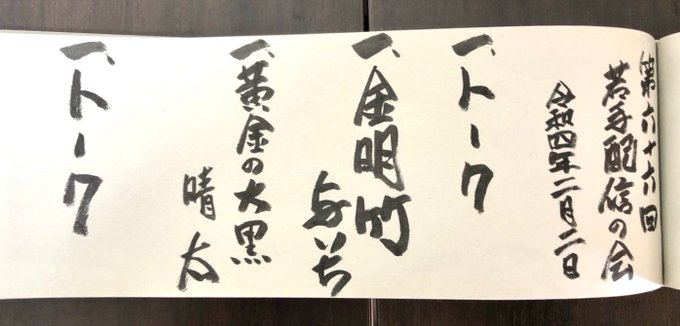 第六十六回
若手配信の会
令和四年二月二日
一、トーク
一、金明竹
与いち
一、黄金の大黒
晴太
一、トーク